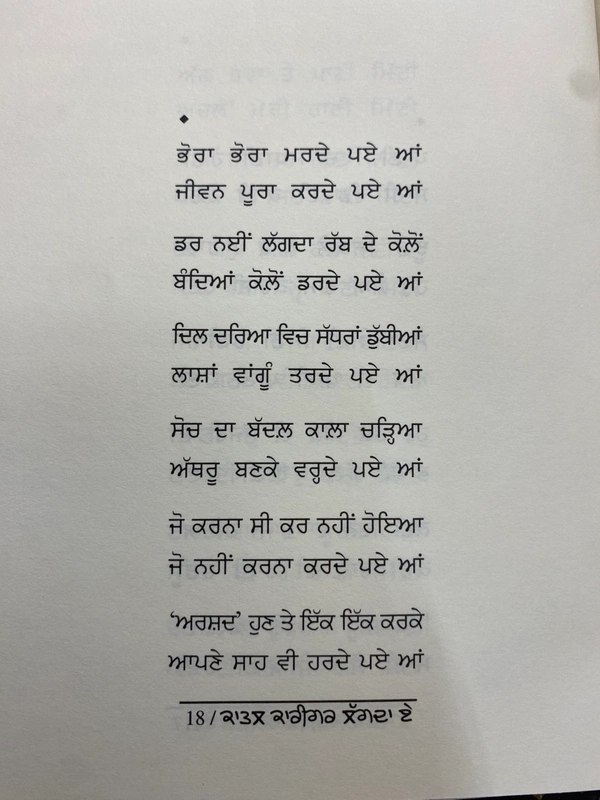 ਭੋਰਾ ਭੋਰਾ ਮਰਦੇ ਪਏ ਆਂ
ਜੀਵਨ ਪੂਰਾ ਕਰਦੇ ਪਏ ਆਂ
ਡਰ ਨਈਂ ਲੱਗਦਾ ਰੱਬ ਦੇ ਕੋਲ਼ੋਂ
ਬੰਦਿਆਂ ਕੋਲ਼ੋਂ ਡਰਦੇ ਪਏ ਆਂ
ਦਿਲ ਦਰਿਆ ਵਿਚ ਸੱਧਰਾਂ ਡੁੱਬੀਆਂ
ਲਾਸ਼ਾਂ ਵਾਂਗੂੰ ਤਰਦੇ ਪਏ ਆਂ
ਸੋਚ ਦਾ ਬੱਦਲ਼ ਕਾਲ਼ਾ ਚੜ੍ਹਿਆ
ਅੱਥਰੂ ਬਣਕੇ ਵਰ੍ਹਦੇ ਪਏ ਆਂ
ਜੋ ਕਰਨਾ ਸੀ ਕਰ ਨਹੀਂ ਹੋਇਆ
ਜੋ ਨਹੀਂ ਕਰਨਾ ਕਰਦੇ ਪਏ ਆਂ
‘ਅਰਸ਼ਦ’ ਹੁਣ ਤੇ ਇੱਕ ਇੱਕ ਕਰਕੇ
ਆਪਣੇ ਸਾਹ ਵੀ ਹਰਦੇ ਪਏ ਆਂ
18 / ਕਾਤਲ ਕਾਰੀਗਰ ਲੱਗਦਾ ਏ